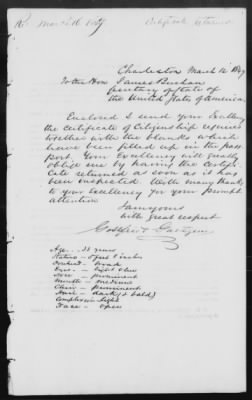 Charleston March 16 1847
To the Hon James Buchan
Secretary of State of
the United States of America
Enclosed I send your Excellency
the certificate of Citizenship required
together with the blanks which
have been filled up in the pass
port. Your Excellency will greatly
oblige me by having the certifi
cate returned as soon as it has
been inspected. With many thanks
to your Excellency for your prompt
attention
I am yours
with great respect
Age - 33 years
Stature - 5 feet 8 inches
Forehead - broad
Eyes - light blue
Nose - prominent
Mouth - medium
Chin - prominent
Hair - dark (& bald)
Complexion Light
Face - open